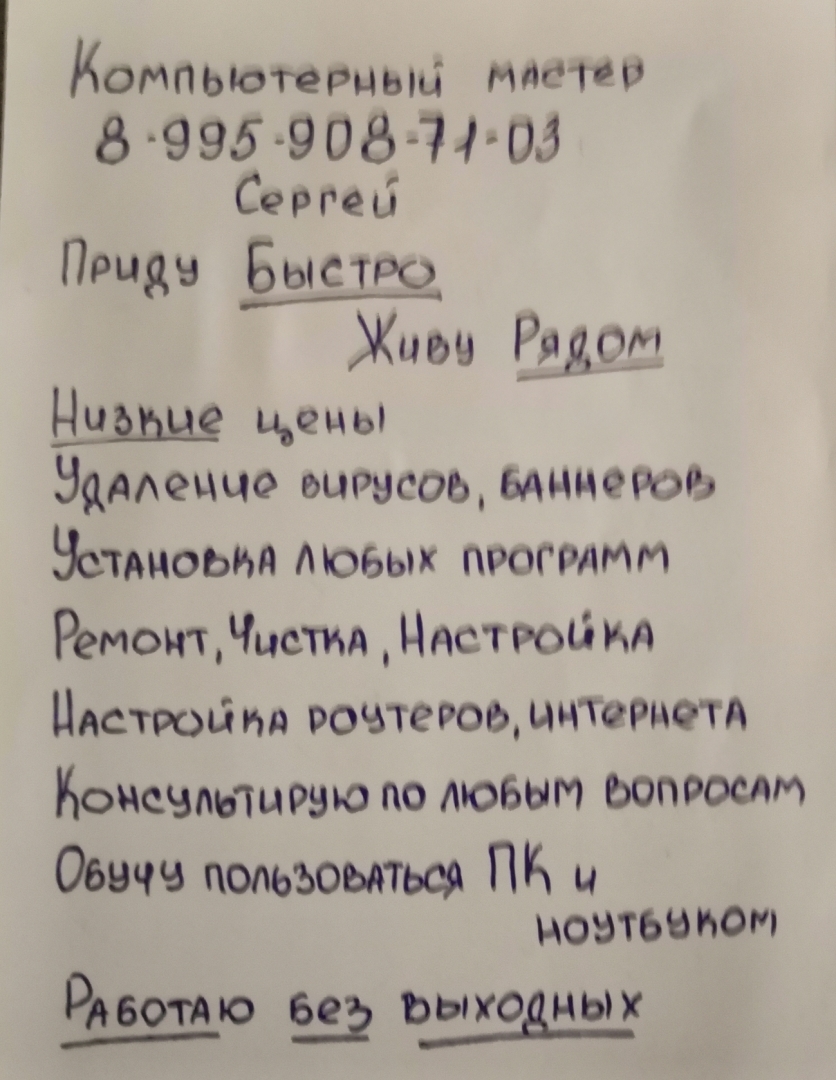 Компьютерный мастер
8-995-908-71-03
Сергей
Приду Быстро
Живу Рядом
Низкие цены
Удаление вирусов, баннеров
Установка любых программ
Ремонт, Чистка, Настройка
Настройка роутеров, интернета
Консультирую по любым вопросам
Обучу пользоваться ПК и
ноутбуком
Работаю без выходных